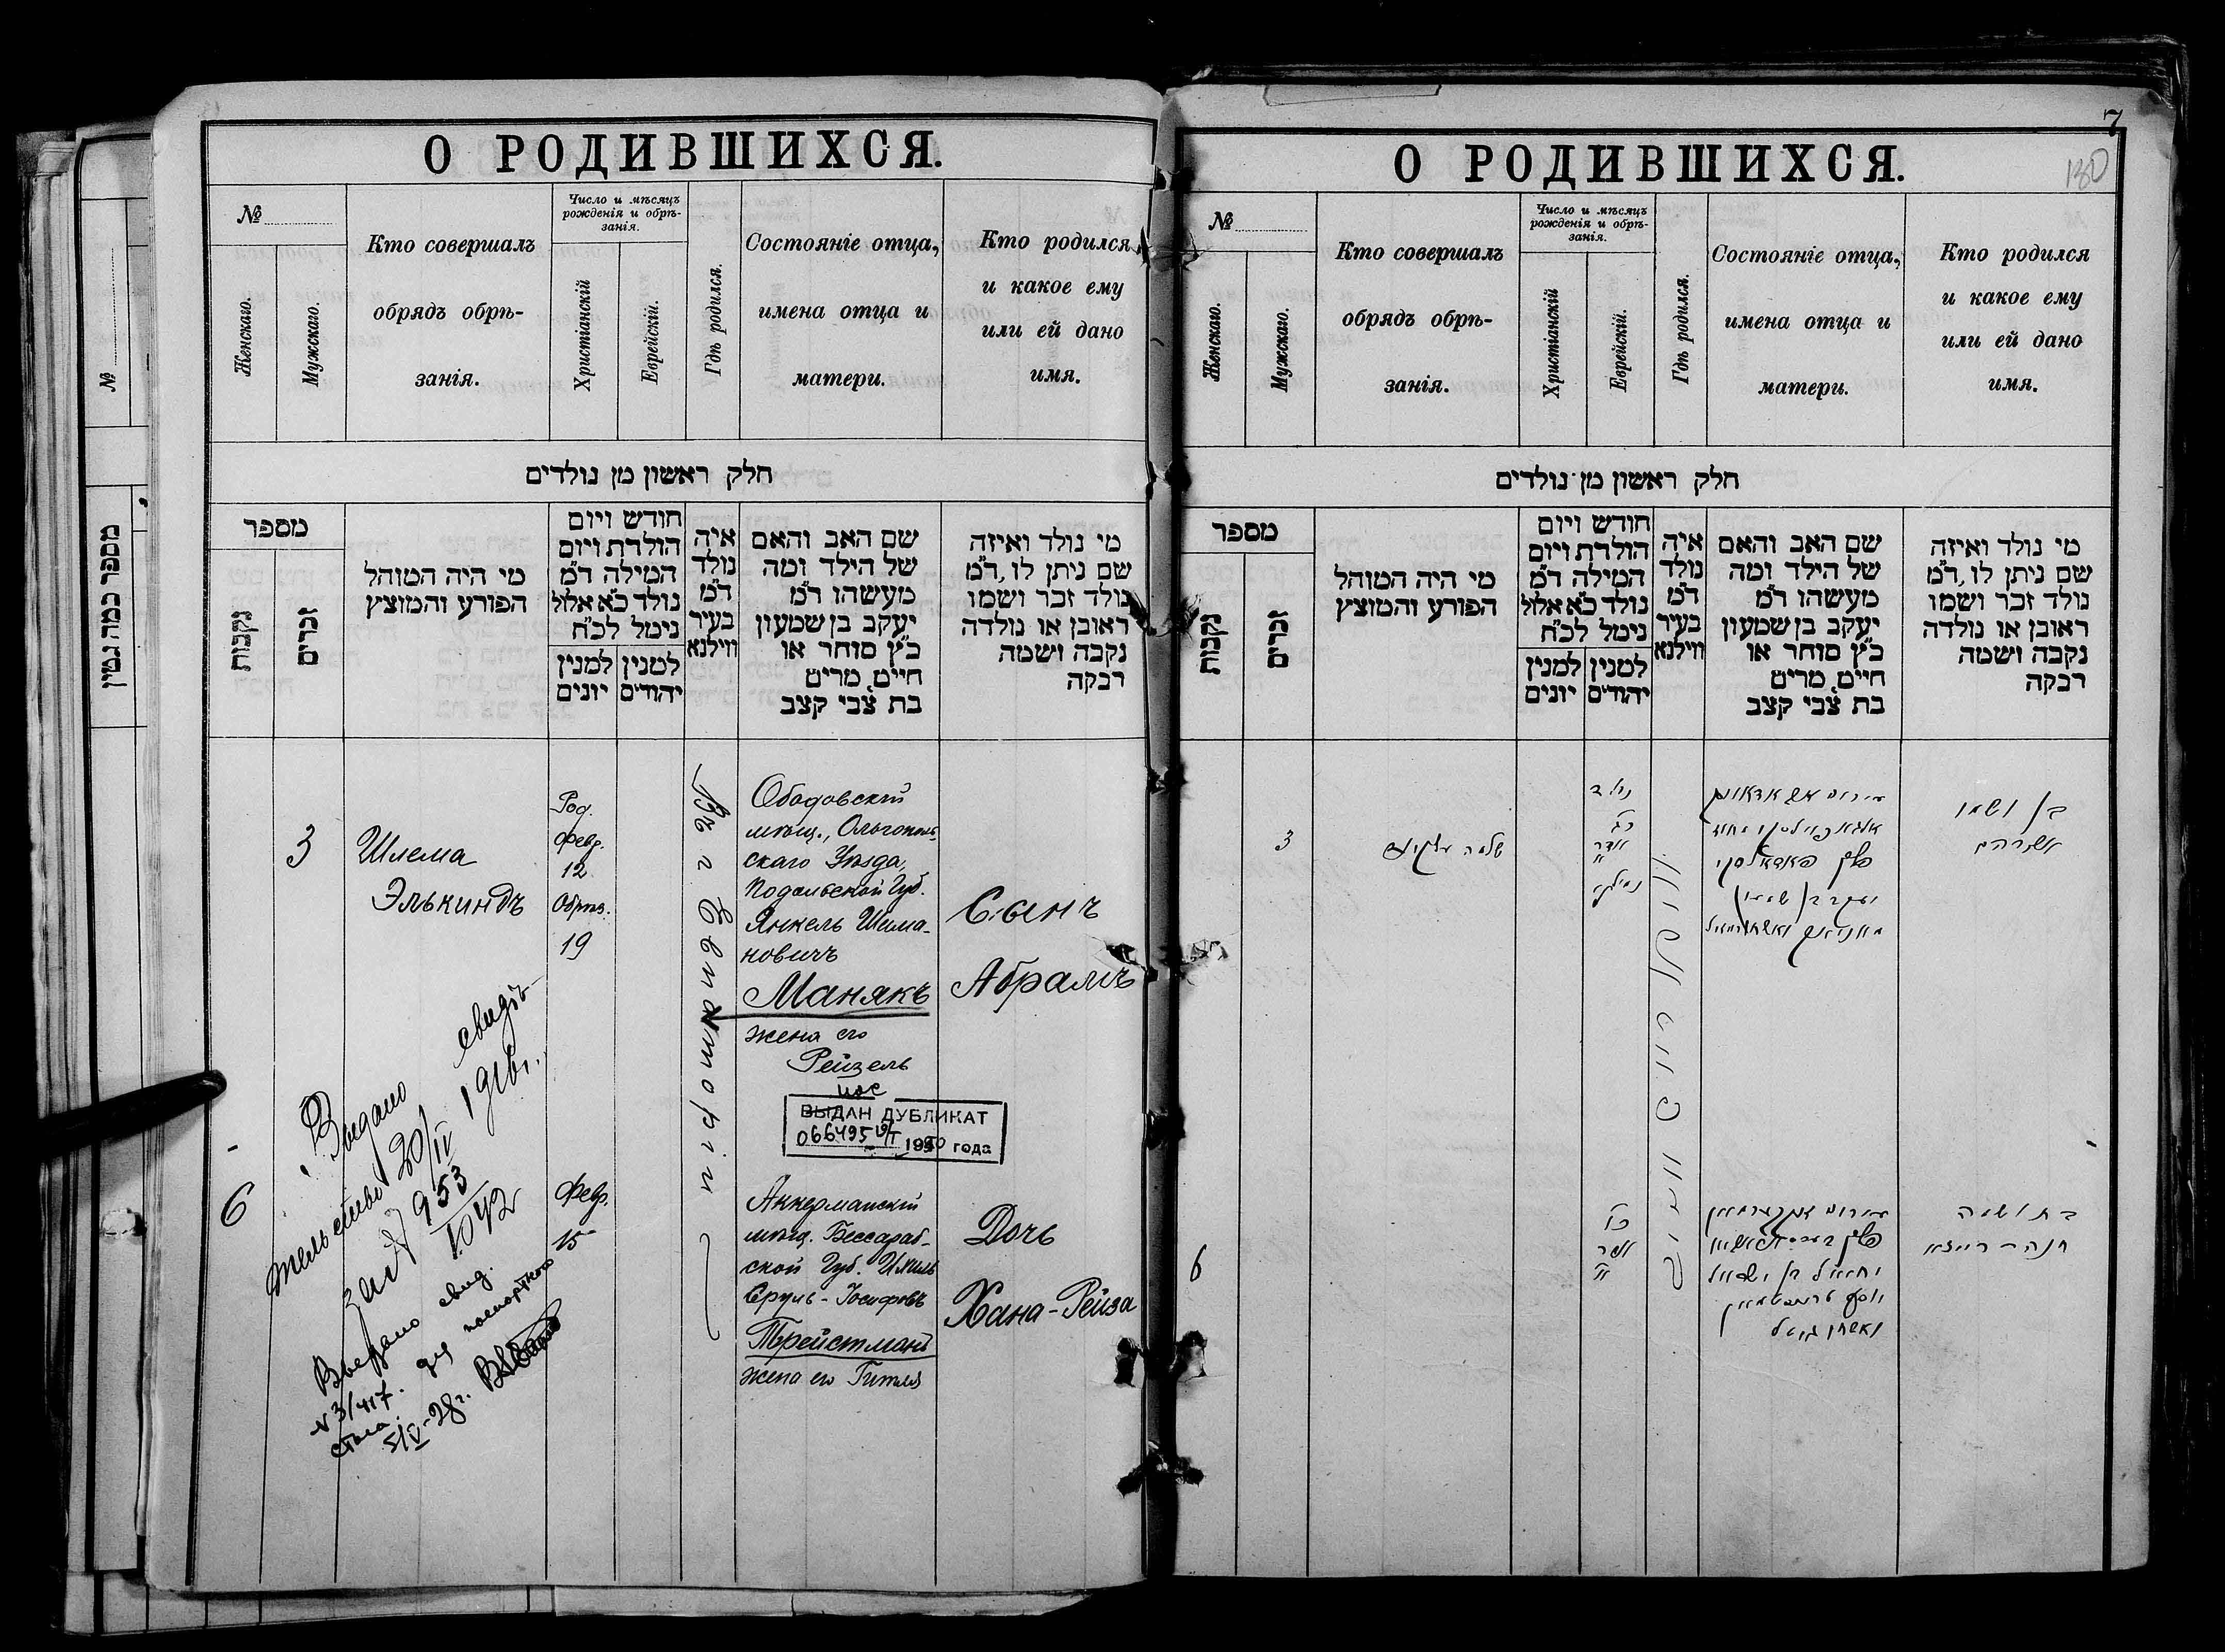 О РОДИВШИХСЯ.
№
Женскаго.
Мужскаго.
Кто совершалъ
обрядъ обрѣ-
занія.
Число и мѣсяцъ
рожденія и обрѣ-
занія.
Христіанскій
Еврейскій.
Гдѣ родился.
Состояніе отца,
имена отца и
матери.
Кто родился
и какое ему
или ей дано
имя.
חלק ראשון מן נולדים
מספר
נקבות
זכרים
מי היה המוהל
הפורע והמוצץ
חודש ויום
הולדת ויום
המילה ד״מ
נולד כ״א אלול
נימל לכ״ח
למנין יונים
למנין יהודים
איה
נולד
ד״מ
בעיר
ווילנא
שם האב והאם
של הילד ומה
מעשהו ד״מ
יעקב בן שמעון
כ״ץ סוחר או
חייט, מרים
בת צבי קצב
מי נולד ואיזה
שם ניתן לו, ד״מ
נולד זכר ושמו
ראובן או נולדה
נקבה ושמה
רבקה
3
Шлема
Элькиндъ
Род.
Февр.
12
Обрѣз.
19
Въ г. Евпаторіи
Ободовскій
мѣщ., Ольгополь-
скаго Уѣзда,
Подольской Губ.
Янкель Шема-
новичъ
Манякъ
жена его
Рейзель
Сынъ
Абрамъ
ВЫДАН ДУБЛИКАТ
066495
1950 года
Выдано свидѣ-
тельство 20/IV 1916 г.
за № 953
1042
Выдано свид.
№ 3/417. для паспортного
стола.
5/V-28 г.
6
Февр.
15
Аккерманскій
мѣщ. Бессараб-
ской Губ. Ихиль
Сруль-Іосифовъ
Трейстманъ
жена его Гитля
Дочь
Хана-Рейза
מספר כמה גטין
№
О РОДИВШИХСЯ.
7
130
№
Женскаго.
Мужскаго.
Кто совершалъ
обрядъ обрѣ-
занія.
Число и мѣсяцъ
рожденія и обрѣ-
занія.
Христіанскій
Еврейскій.
Гдѣ родился.
Состояніе отца,
имена отца и
матери.
Кто родился
и какое ему
или ей дано
имя.
חלק ראשון מן נולדים
מספר
נקבות
זכרים
מי היה המוהל
הפורע והמוצץ
חודש ויום
הולדת ויום
המילה ד״מ
נולד כ״א אלול
נימל לכ״ח
למנין יונים
למנין יהודים
איה
נולד
ד״מ
בעיר
ווילנא
שם האב והאם
של הילד ומה
מעשהו ד״מ
יעקב בן שמעון
כ״ץ סוחר או
חייט, מרים
בת צבי קצב
מי נולד ואיזה
שם ניתן לו, ד״מ
נולד זכר ושמו
ראובן או נולדה
נקבה ושמה
רבקה
3
שלמה עלקינד
נולד
אדר
בן ושמו
אברהם
6
אדר
בת ושמה
חנה-רייזא